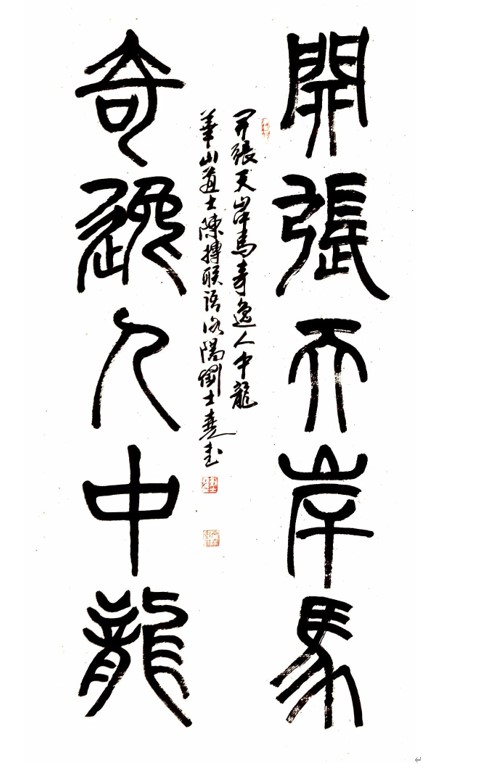 開張天岸馬
开張天岸馬奇逸人中龍
華山道士陳摶联語洛陽劉士堯書
奇逸人中龍